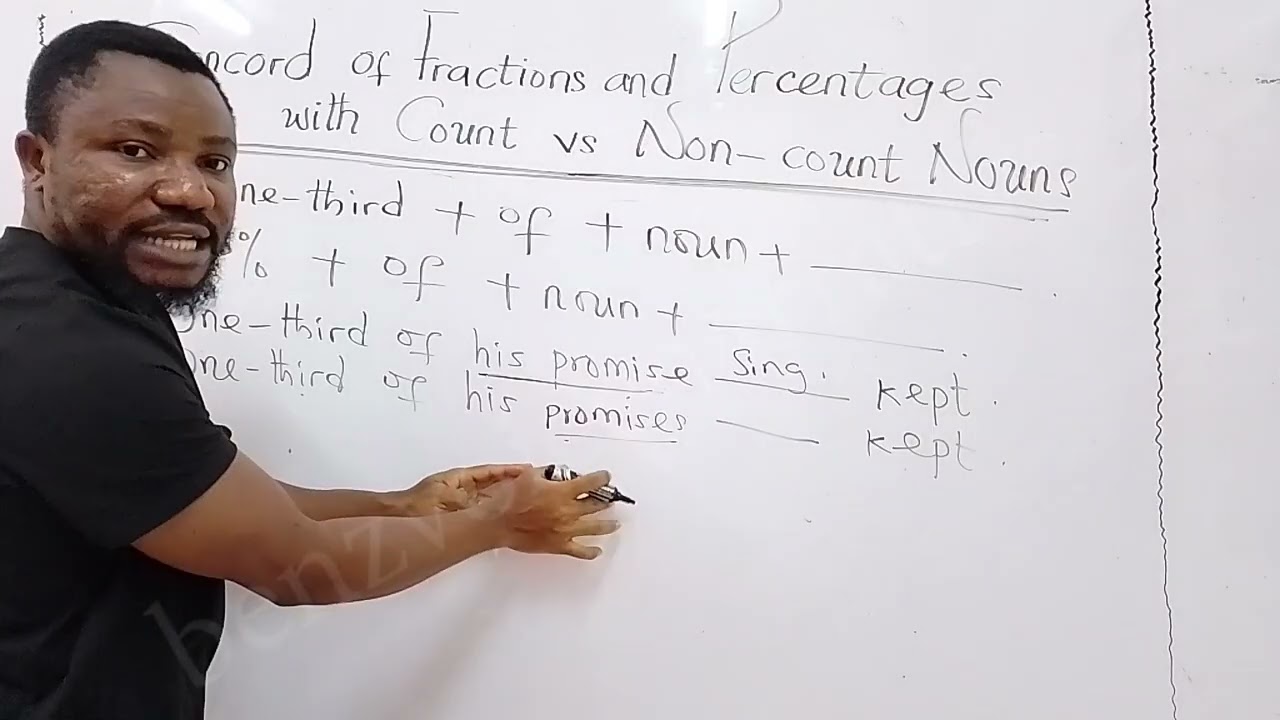 ncord of Fractions and Percentages
with Count vs Non-count Nouns
ne-third + of + noun + ______.
% + of + noun + ______.
One-third of his promise Sing. kept.
One-third of his promises ____ kept.
benzv